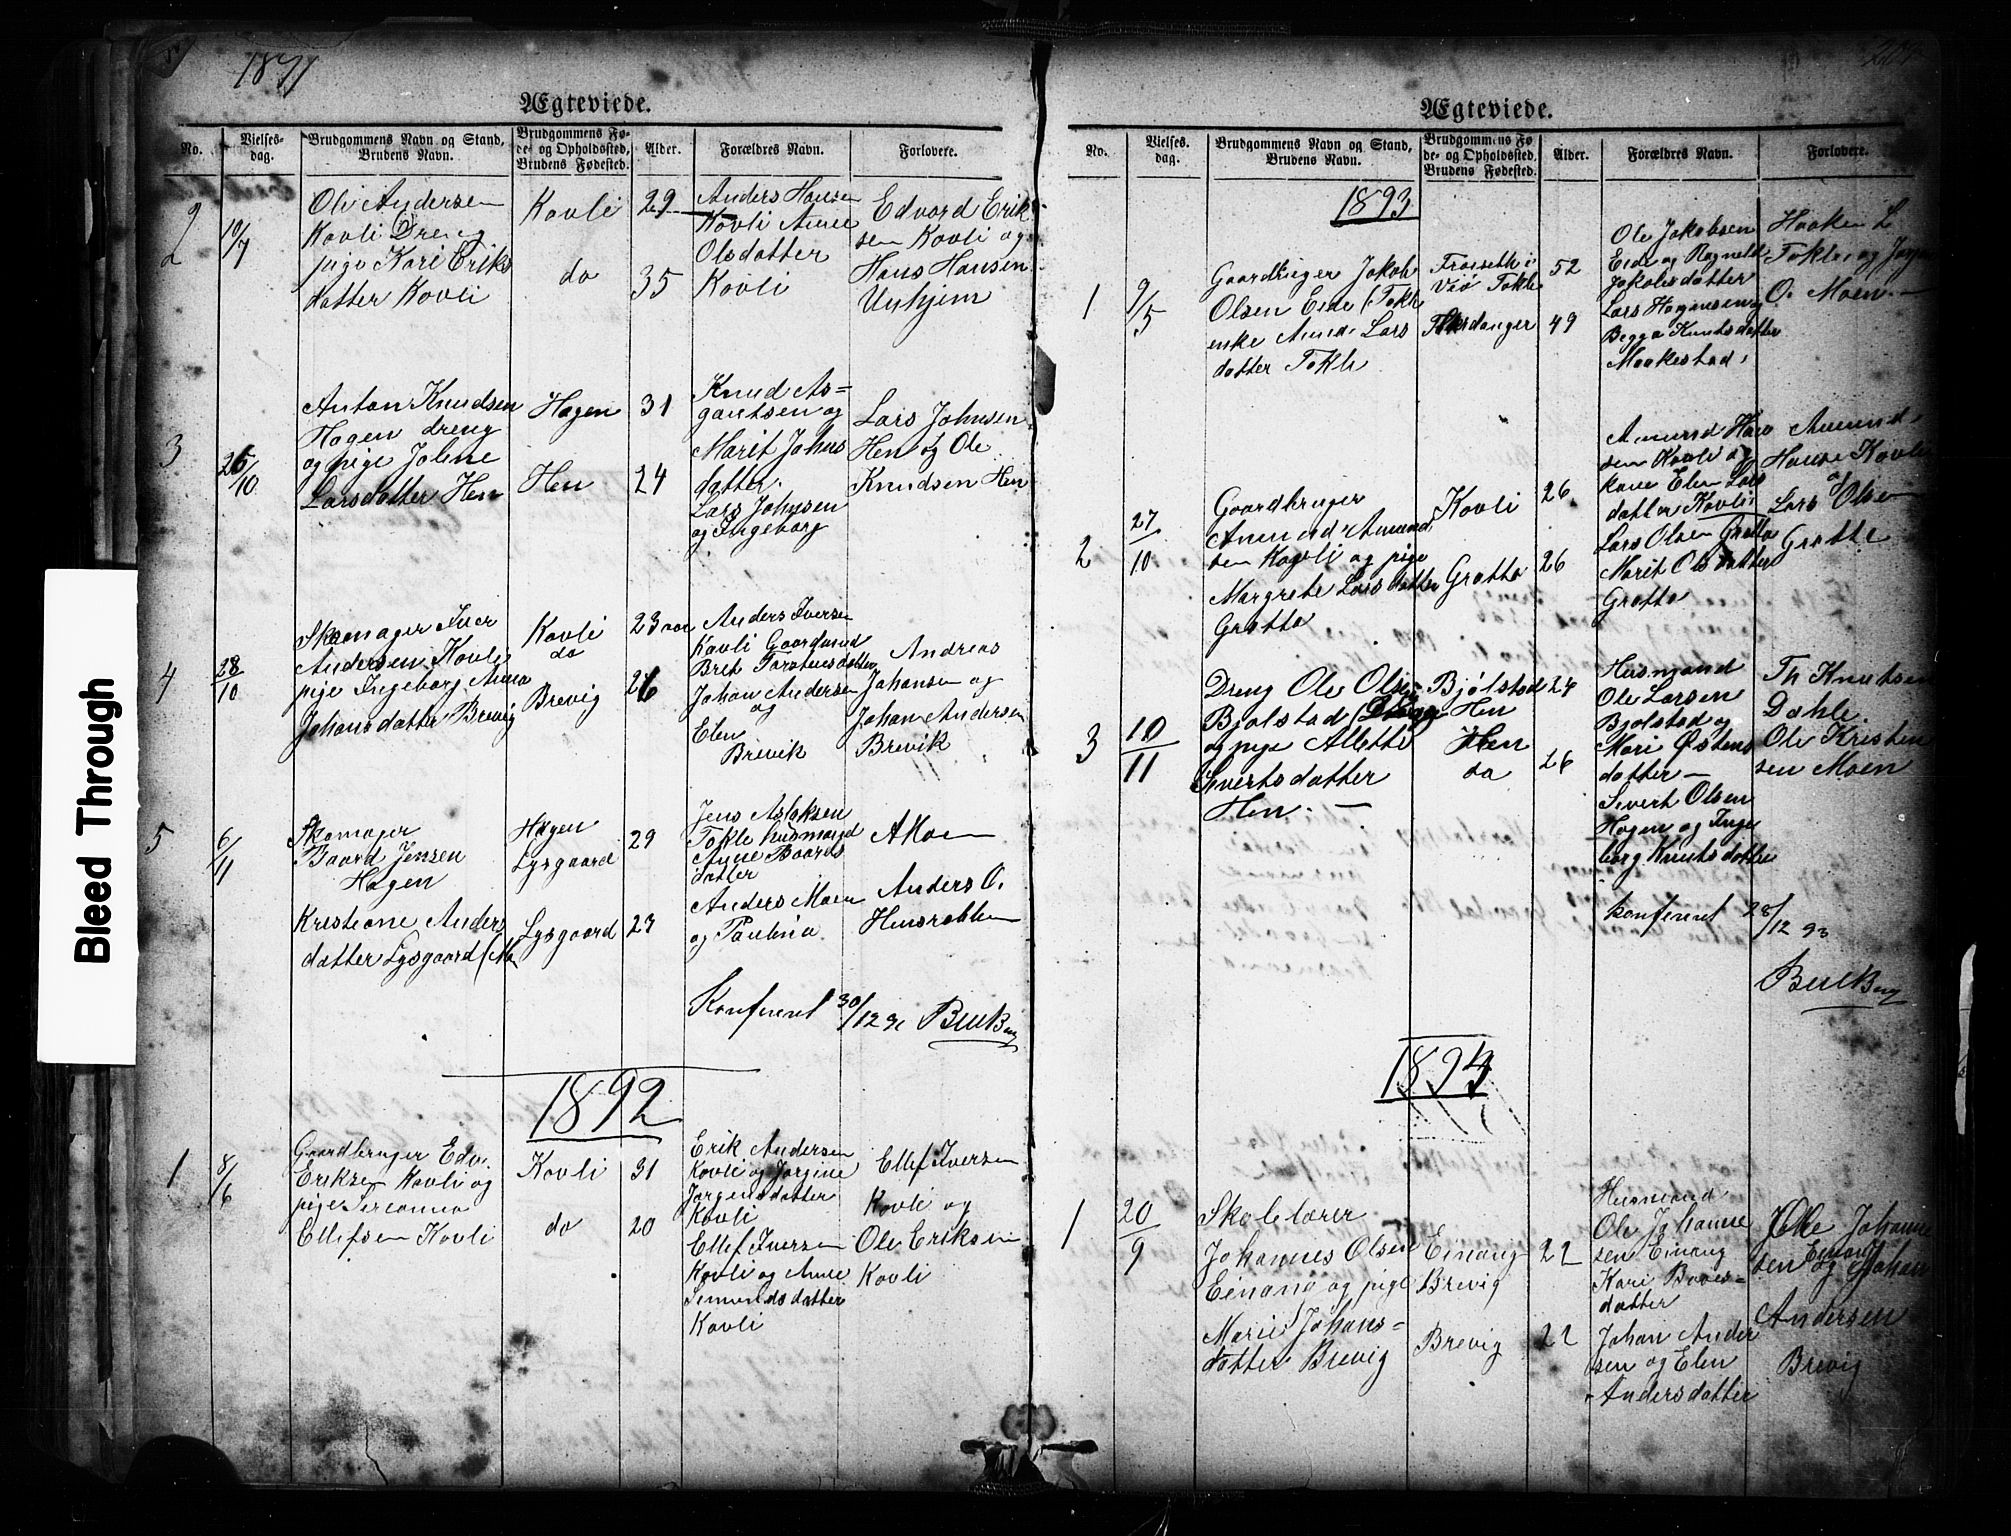 1891
Ægteviede.
No.
Vielses-
dag.
Brudgommens Navn og Stand,
Brudens Navn.
Brudgommens Fø-
de- og Opholdssted,
Brudens Fødested.
Alder.
Forældres Navn.
Forlovere.
2
10/7
Ole Andersen
Kovli Dreng
pige Kari Eriks
datter Kovli
Kovli
do
29
35
Anders Hansen
Kovli Anne
Olsdatter
Kovli
Edvard Erik-
sen Kovli og
Hans Hansen
Unhjem
3
26/10
Anton Knudsen
Hagen dreng
og pige Joline
Larsdatter Hen
Hagen
Hen
31
24
Knud As=
gautsen og
Marit Johns
datter.
Lars Johnsen
og Ingeborg
Lars Johnsen
Hen og Ole
Knudsen Hen
4
28/10
Skomager Iver
Andersen Kovli
pige Ingeborg Anna
Johansdatter Brevig
Kovli
do
Brevig
23 aar
26
Anders Iversen
Kovli Gaardmand
Brit Torstensdatter
Johan Andersen
og
Elen
Brevik
Andreas
Johansen og
Johan Andersen
Brevik
5
6/11
Skomager
Baard Jensen
Hagen
Kristiane Anders
datter Lysgaard (Mo
Hagen
Lysgaard
Lysgaard
29
23
Jens Aslaksen
Tokle husmand
Anne Baards
datter
Anders Moen
og Paulina
A Moe
Anders O.
Husrabben
Konfereret 30/12 91 Buck
1892
1
8/6
Gaardbruger Edv.
Eriksen Kovli og
pige Sirianna
Ellefsen Kovli
Kovli
do
31
20
Erik Andersen
Kovli og Jørgine
Jørgensdatter
Kovli
Ellef Iversen
Kovli og Anne
Simundsdatter
Kovli
Ellef Iversen
Kovli og
Ole Eriksen
Kovli
Ægteviede.
No.
Vielses-
dag.
Brudgommens Navn og Stand,
Brudens Navn.
Brudgommens Fø-
de- og Opholdssted,
Brudens Fødested.
Alder.
Forældres Navn.
Forlovere.
1893
1
9/5
Gaardbruger Jakob
Olsen Eide (Tokle
enke Anne Lars
datter Tokle
Veø Tokle
52
49
Ole Jakobsen
Eide og Ragnild
Jakobsdatter
Lars Hagensen og
Begga Knutsdatter
Maakestad
Haaken L
Tokle og
O. Moen
2
27/10
Gaardbruger
Amund Amund
sen Kovli og pige
Margrete Larsdatter
Grøtta
Kovli
Grøtta
26
26
Amund Han
sen Kovli og
kone Elen Lars
datter Kovli
Lars Olsen Grøtta
Marit Olsdatter
Grøtta
Amund
Hanse Kovli
og
Lars Olsen
Grøtte
3
10/11
Dreng Ole Olsen
Bjølstad
og pige Allette
Sivertsdatter
Hen. —
Bjølstad
Hen
Hen
do
24
26
Husmand
Ole Larsen
Bjølstad og
Mari Østens
datter —
Sivert Olsen
Hagen og Inge
borg Knutsdatter
Th Knutsen
Dahle.
Ole Kristen
sen Moen
konfereret 28/12 93
Buck
1894
1
20/9
Skolelærer
Johannes Olsen
Einang og pige
Marie Johans=
datter Brevig
Einang
Brevig
Brevig
22
22
Husmand
Ole Johanne
sen Einang
Kari Baards=
datter
Johan Ander
sen og Elen
Andersdatter
Ole Johanne
sen Einang
og Johan
Andersen
Brevig